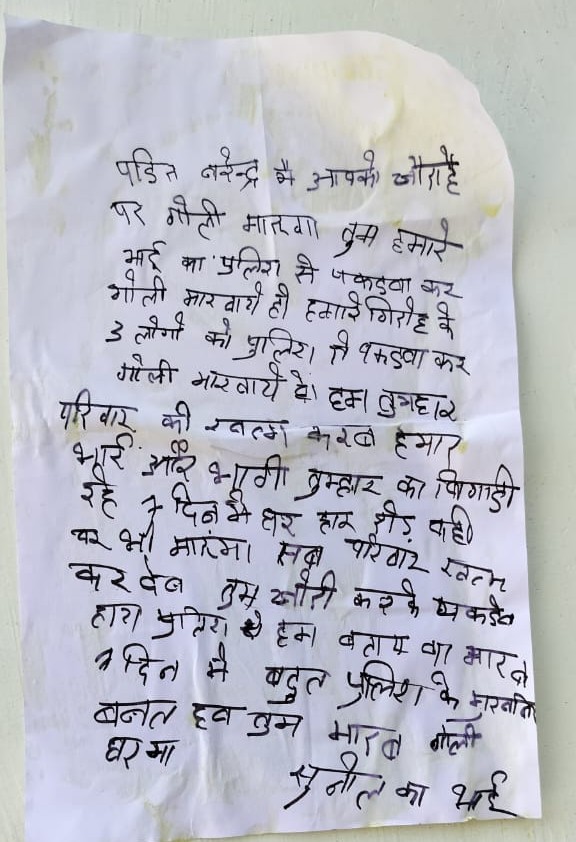 पंडित नरेन्द्र मै आपको चौराहे
पर गोली मारूगा तुम हमारे
भाई का पुलिस से पकडवा कर
गोली मारवाये हो हमारे गिरोह के
3 लोगो को पुलिस से पकडवा कर
गोली मारवाये हो हम तुमहार
परिवार को खत्म करब हमार
भाई और भागी तुम्हार का बिगाडी
रहे 7 दिन मे घर द्वार छोड़ नाही
पर भी मारूगा सब परिवार खत्म
कर देब तुम चोरी करके पकडेव
हारा पुलिस से हम बताय का मारब
7 दिन मे बहुत पुलिस के
बनत हव तुम मारब गोली
घर मा
सुनील का भाई